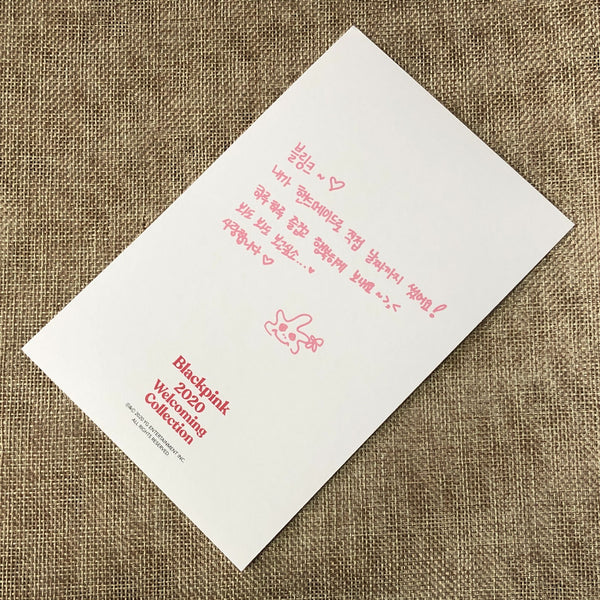 블링크 ~ ♡
내가 핸드메이드로 직접 날짜까지 썼어요!
하루 하루 즐겁고 행복하게 보내요 ~ >,<
보고 보고 보고싶소... ♥
사랑합니다 ♡
Blackpink
2020
Welcoming
Collection
©&℗ 2020 YG ENTERTAINMENT INC.
ALL RIGHTS RESERVED.